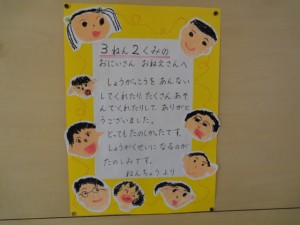 3ねん2くみの
おにいさん おねえさんへ
しょうがっこうを あんない
してくれたり、たくさん あそ
んでくれたりして、ありがと
うございました。
とってもたのしかったです。
しょうがくせいに なるのが
たのしみです。
ねんちょう より